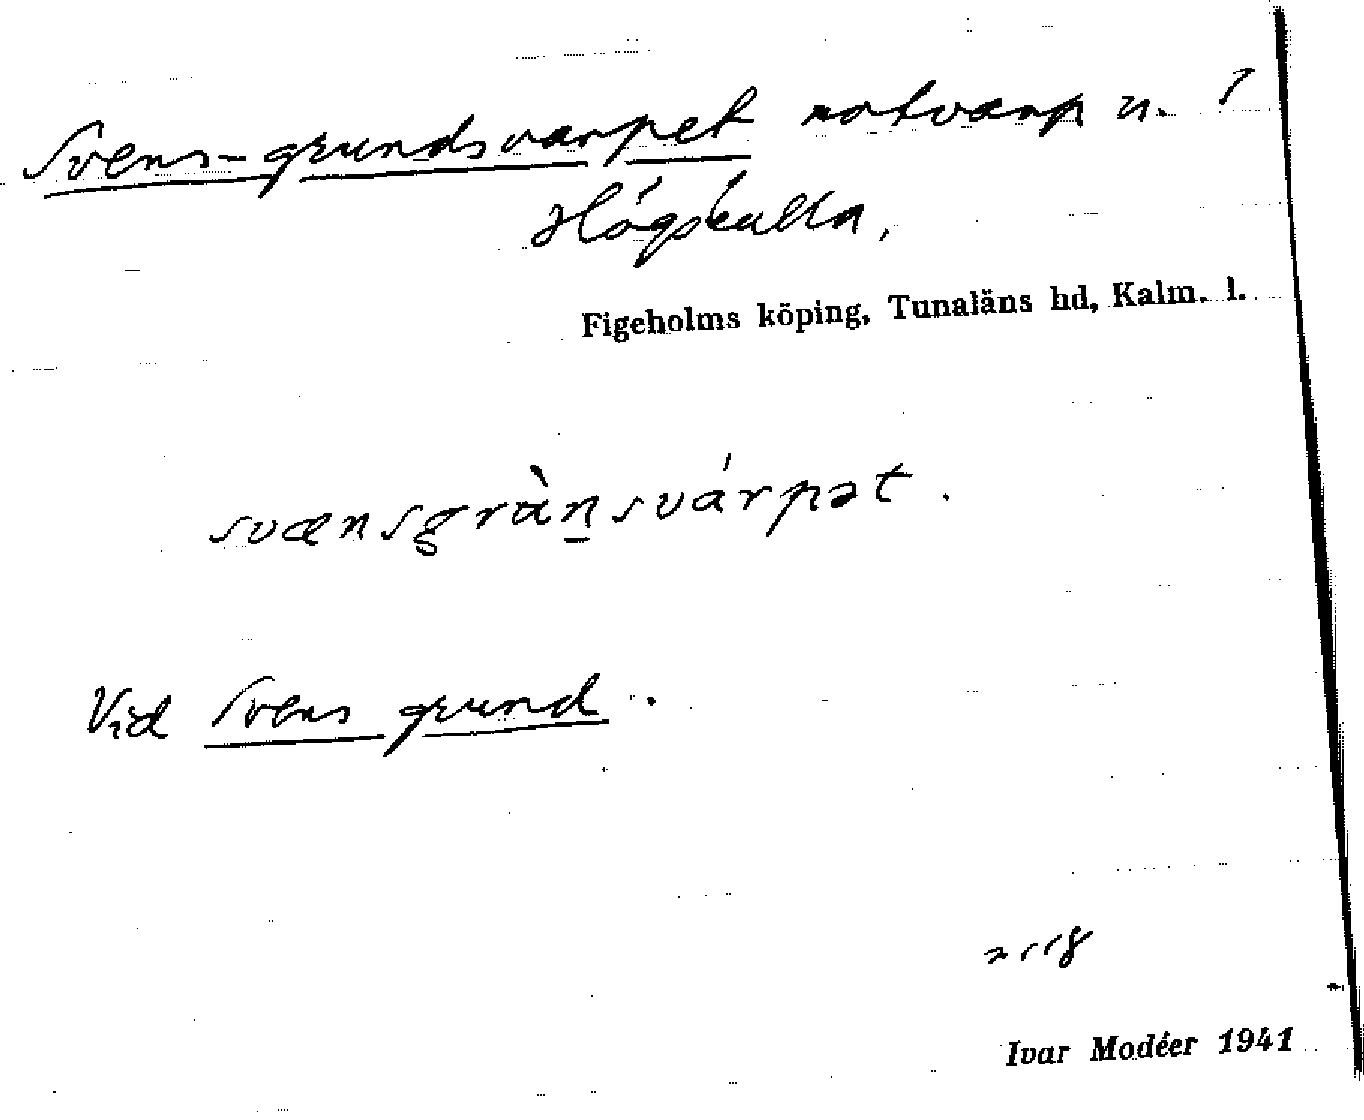 Svens-grundsvarpet notvarp n. 1
Högskulla,
Figeholms köping, Tunaläns hd, Kalm. l.
svænsgrànsvárpət.
Vid Svens grund.
2118
Ivar Modéer 1941